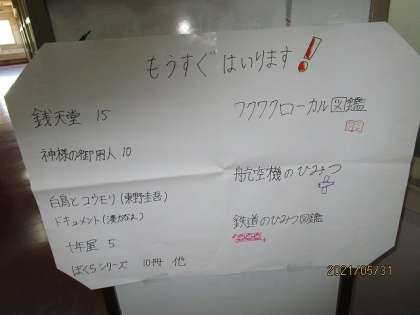 もうすぐ はいります!
銭天堂 15
神様の御用人 10
白鳥とコウモリ(東野圭吾)
ドキュメント(湊かなえ)
十年屋 5
ぼくらシリーズ 10冊 他
フワフワローカル図鑑
航空機のひみつ
鉄道のひみつ図鑑
2021/05/31